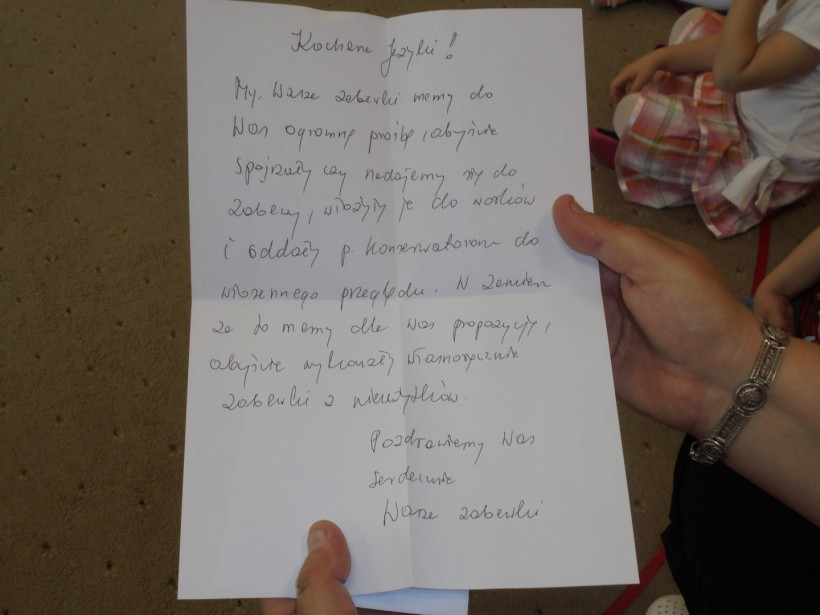 Kochane Jeżyki!
My, Wasze zabawki mamy do
Was ogromną prośbę, abyście
spojrzały czy nadajemy się do
zabawy, włożyły je do worków
i oddały p. konserwatorom do
wiosennego przeglądu. W zamian
za to mamy dla Was propozycję,
abyście wykonały własnoręcznie
zabawki z nieużytków.
Pozdrawiamy Was
serdecznie
Wasze zabawki